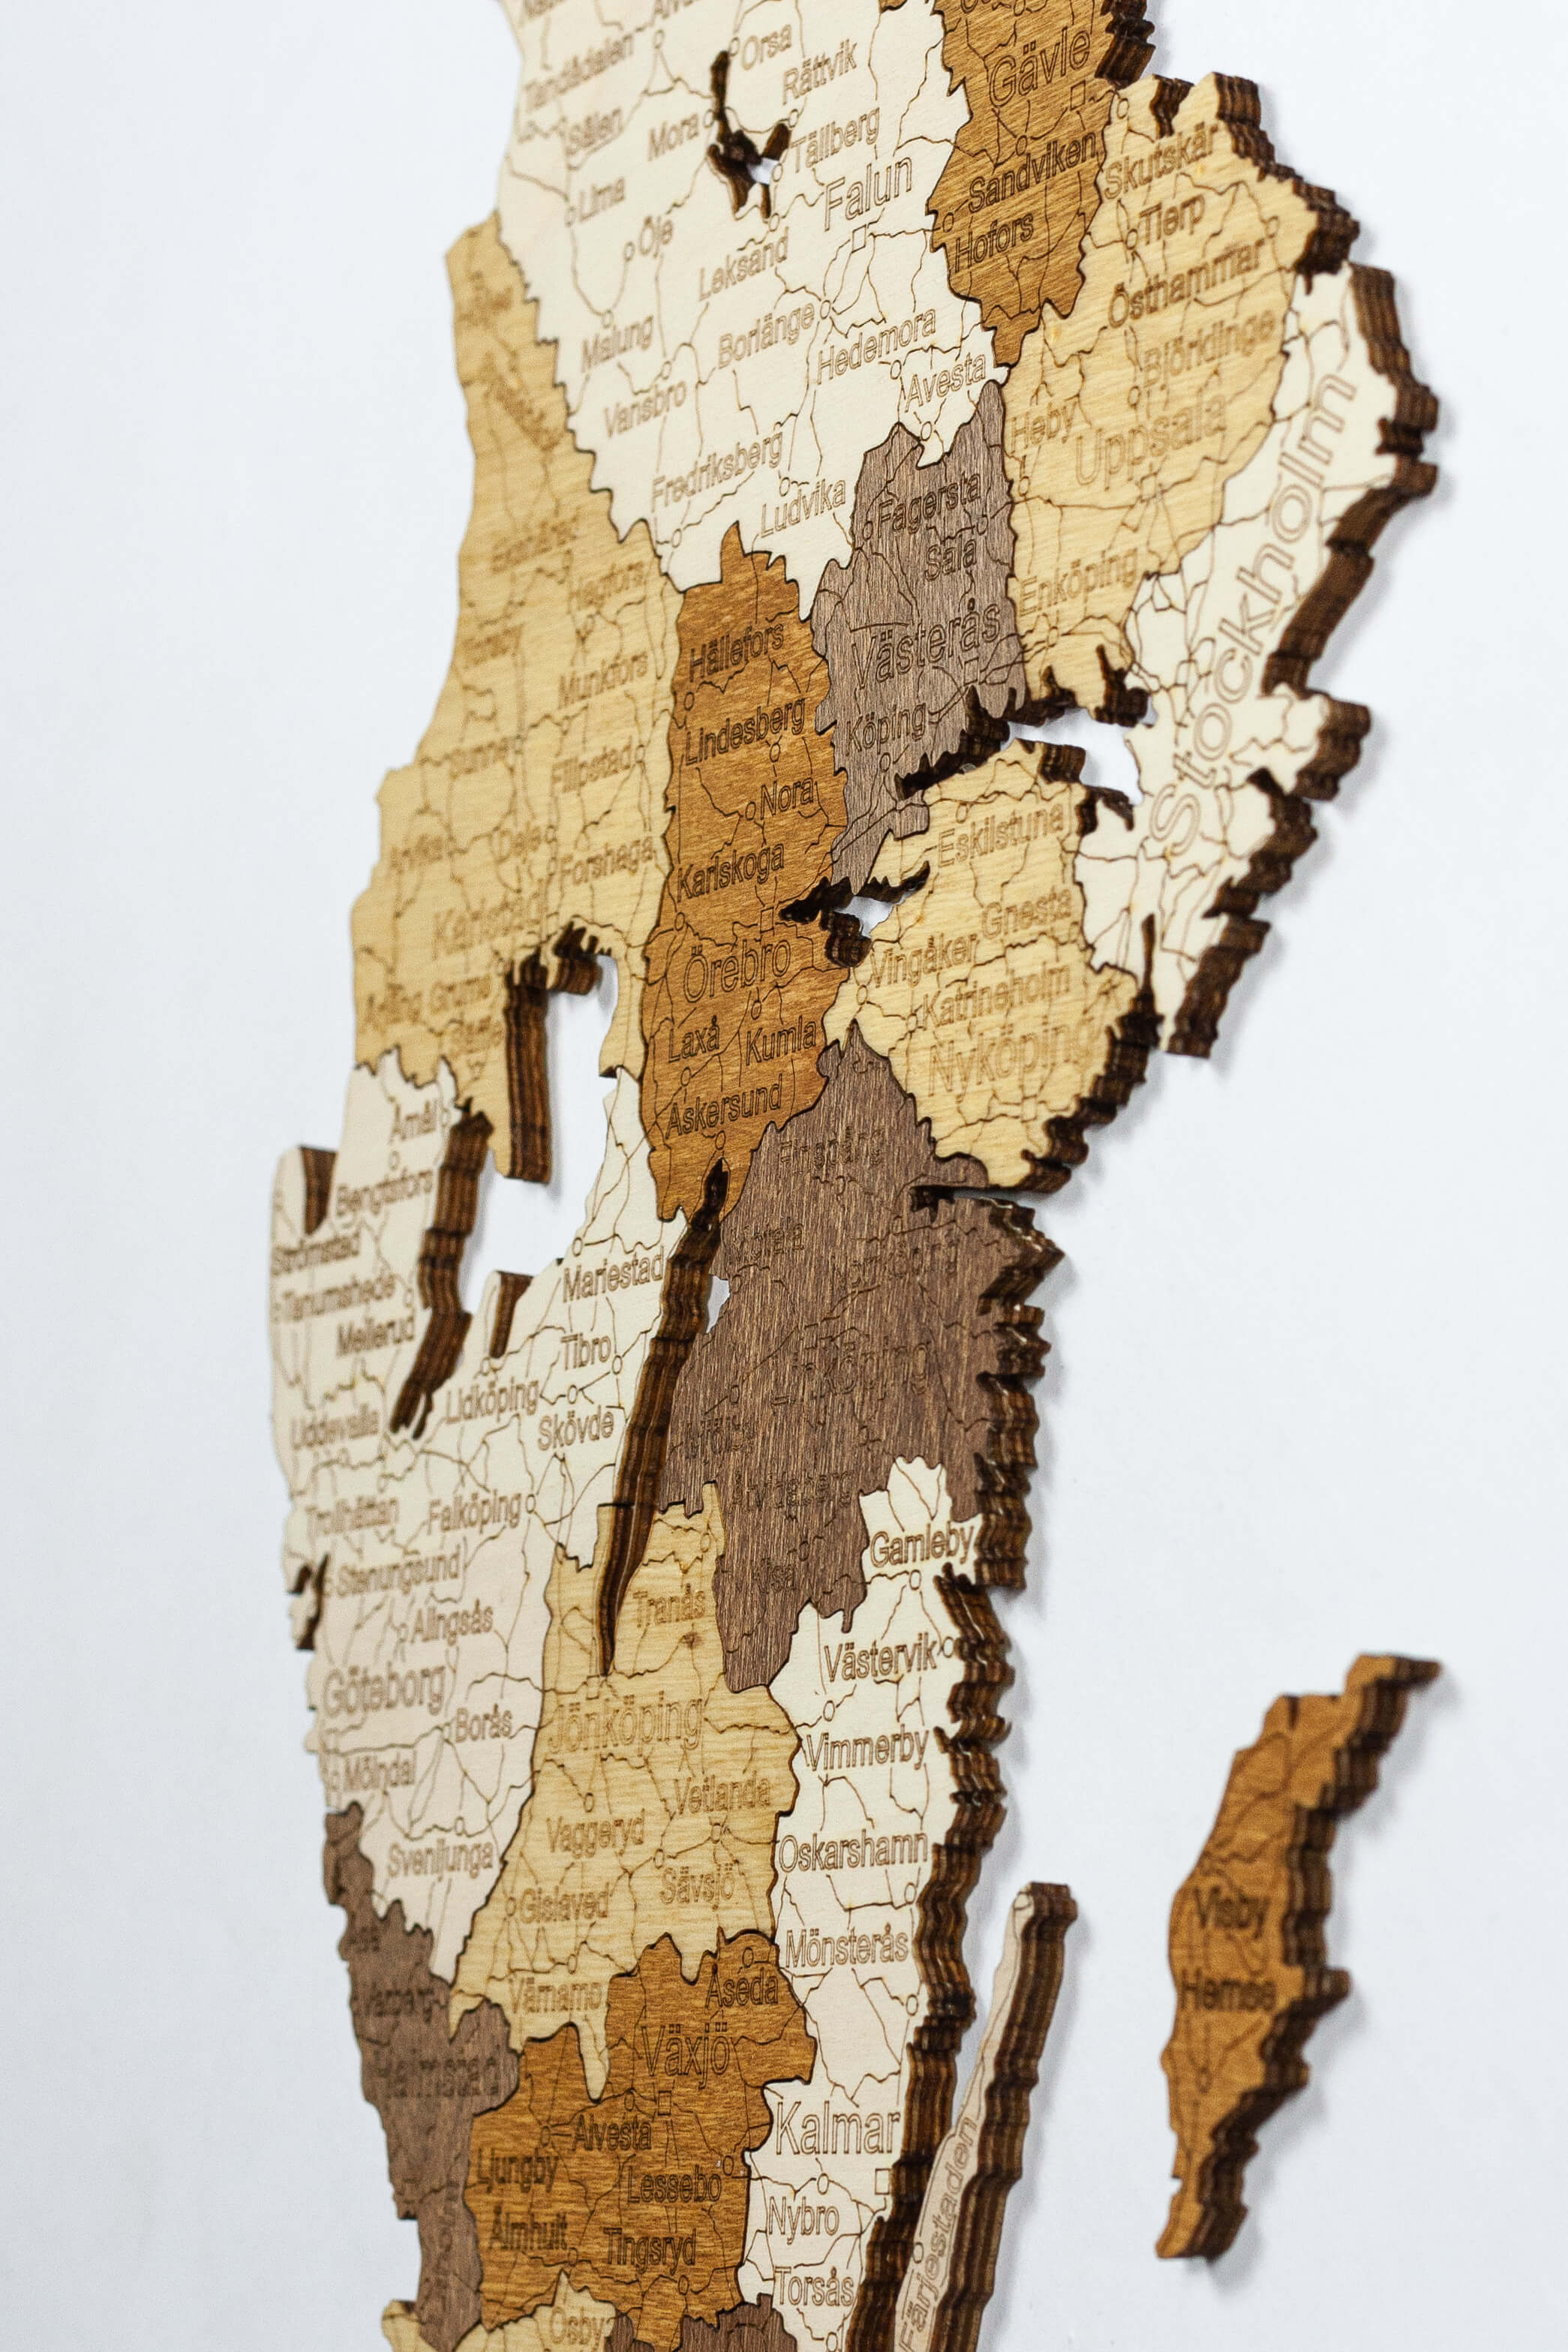 Orsa
Rättvik
Tandådalen
Sälen
Mora
Tällberg
Falun
Lima
Öje
Leksand
Malung
Borlänge
Hedemora
Vansbro
Avesta
Fredriksberg
Ludvika
Gävle
Sandviken
Hofors
Skutskär
Tierp
Östhammar
Björklinge
Heby
Uppsala
Enköping
Stockholm
Fagersta
Sala
Västerås
Köping
Hagfors
Munkfors
Sunne
Filipstad
Forshaga
Karlstad
Grums
Hällefors
Lindesberg
Nora
Karlskoga
Örebro
Laxå
Kumla
Askersund
Eskilstuna
Gnesta
Vingåker
Katrineholm
Nyköping
Finspång
Motala
Norrköping
Linköping
Mjölby
Åtvidaberg
Kisa
Åmål
Bengtsfors
Strömstad
Tanumshede
Mellerud
Mariestad
Tibro
Lidköping
Skövde
Uddevalla
Trollhättan
Falköping
Stenungsund
Alingsås
Göteborg
Borås
Mölndal
Svenljunga
Tranås
Jönköping
Vetlanda
Vaggeryd
Sävsjö
Gislaved
Värnamo
Gamleby
Västervik
Vimmerby
Oskarshamn
Mönsterås
Kalmar
Nybro
Torsås
Färjestaden
Visby
Hemse
Varberg
Halmstad
Åseda
Växjö
Alvesta
Ljungby
Lessebo
Älmhult
Tingsryd
Osby